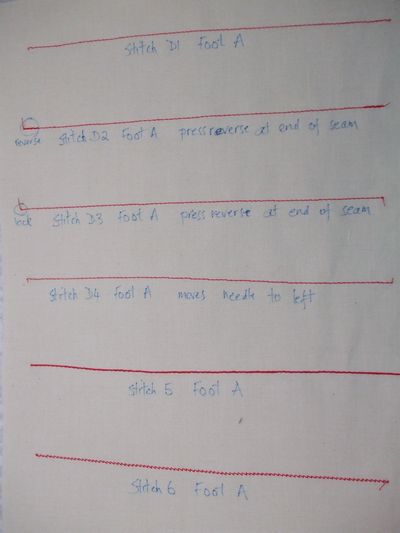 Stitch D1 Foot A
reverse Stitch D2 Foot A press reverse at end of seam
lock Stitch D3 Foot A press reverse at end of seam
Stitch D4 Foot A moves needle to left
Stitch 5 Foot A
Stitch 6 Foot A